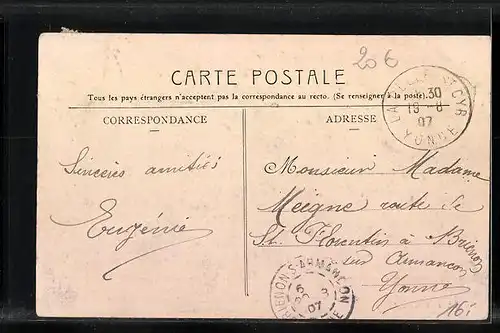 206
CARTE POSTALE
Tous les pays étrangers n'acceptent pas la correspondance au recto. (Se renseigner à la poste).
CORRESPONDANCE
ADRESSE
LA CELLE ST CYR
30
19 -8
07
YONNE
Sincères amitiés
Eugénie
Monsieur Madame
Meigne route de
St. Florentin à Brienon
sur Armançon
Yonne
BRIENON-S-ARMANÇON
07
161